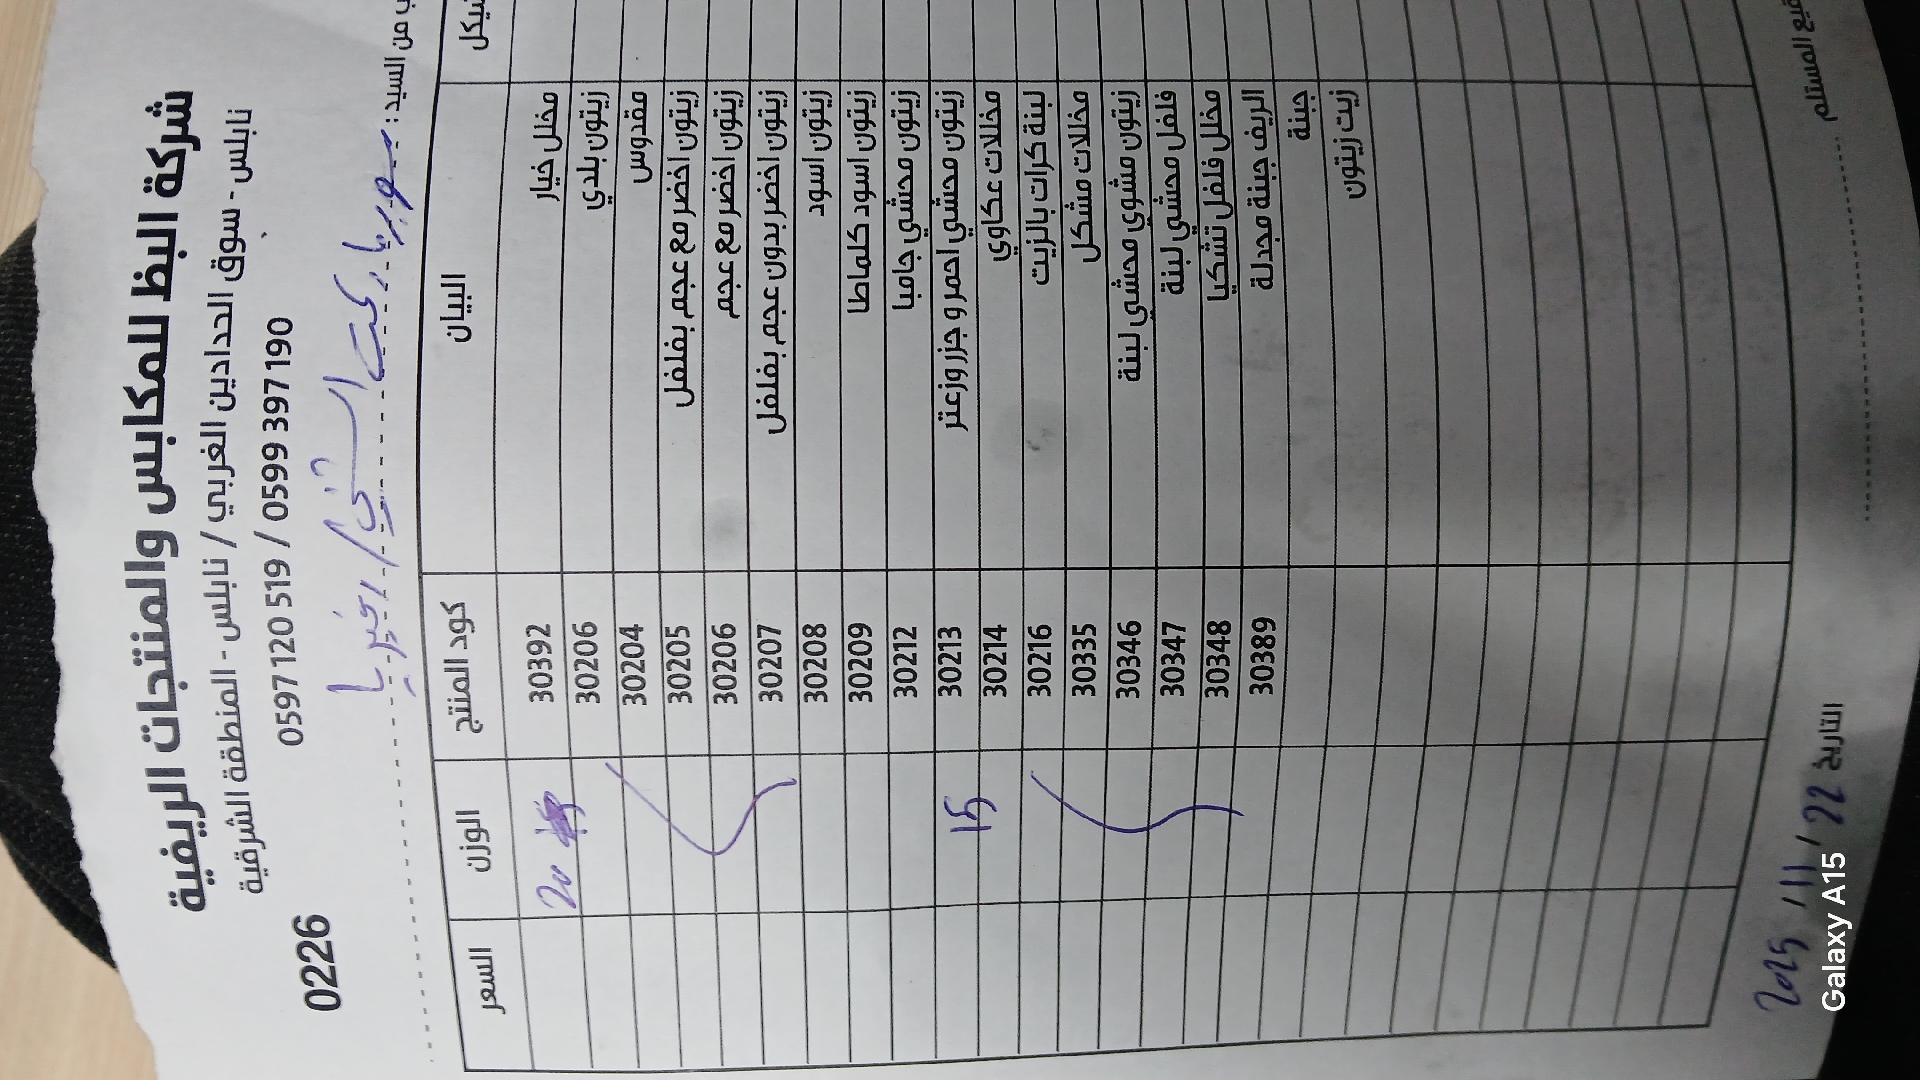 شركة البظ للمكابس والمنتجات الريفية
نابلس - سوق الحدادين الغربي / نابلس - المنطقة الشرقية
0599 397 190 / 0597 120 519
0226
من السيد : سوبر ماركت / رفيديا
شيكل البيان كود المنتج الوزن السعر
مخلل خيار 30392 20
زيتون بلدي 30206
مقدوس 30204
زيتون اخضر مع عجم بفلفل 30205
زيتون اخضر مع عجم 30206
زيتون اخضر بدون عجم بفلفل 30207
زيتون اسود 30208
زيتون اسود كلماطا 30209
زيتون محشي جامبا 30212
زيتون محشي احمر و جزر وزعتر 30213 15
مخللات عكاوي 30214
لبنة كرات بالزيت 30216
مخللات مشكل 30335
زيتون مشوي محشي لبنة 30346
فلفل محشي لبنة 30347
مخلل فلفل تشكيا 30348
الريف جبنة مجدلة 30389
جبنة
زيت زيتون
المستلم
التاريخ 22 / 11 / 2025
Galaxy A15